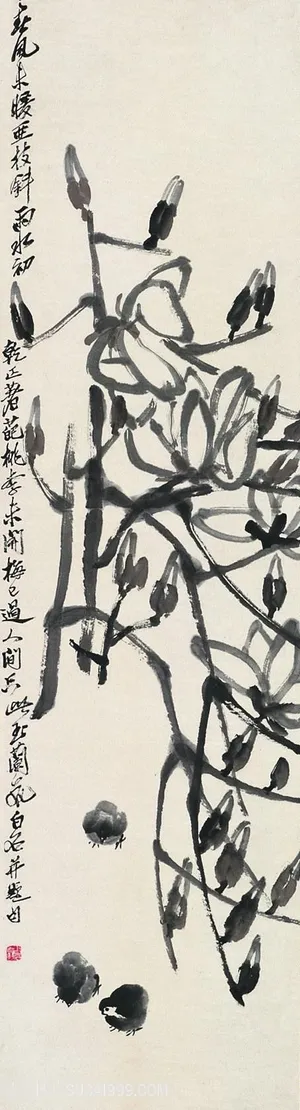 春風未暖亞枝斜雨水初
乾正著葩桃李未開梅已過人間只此玉蘭花白石并題句